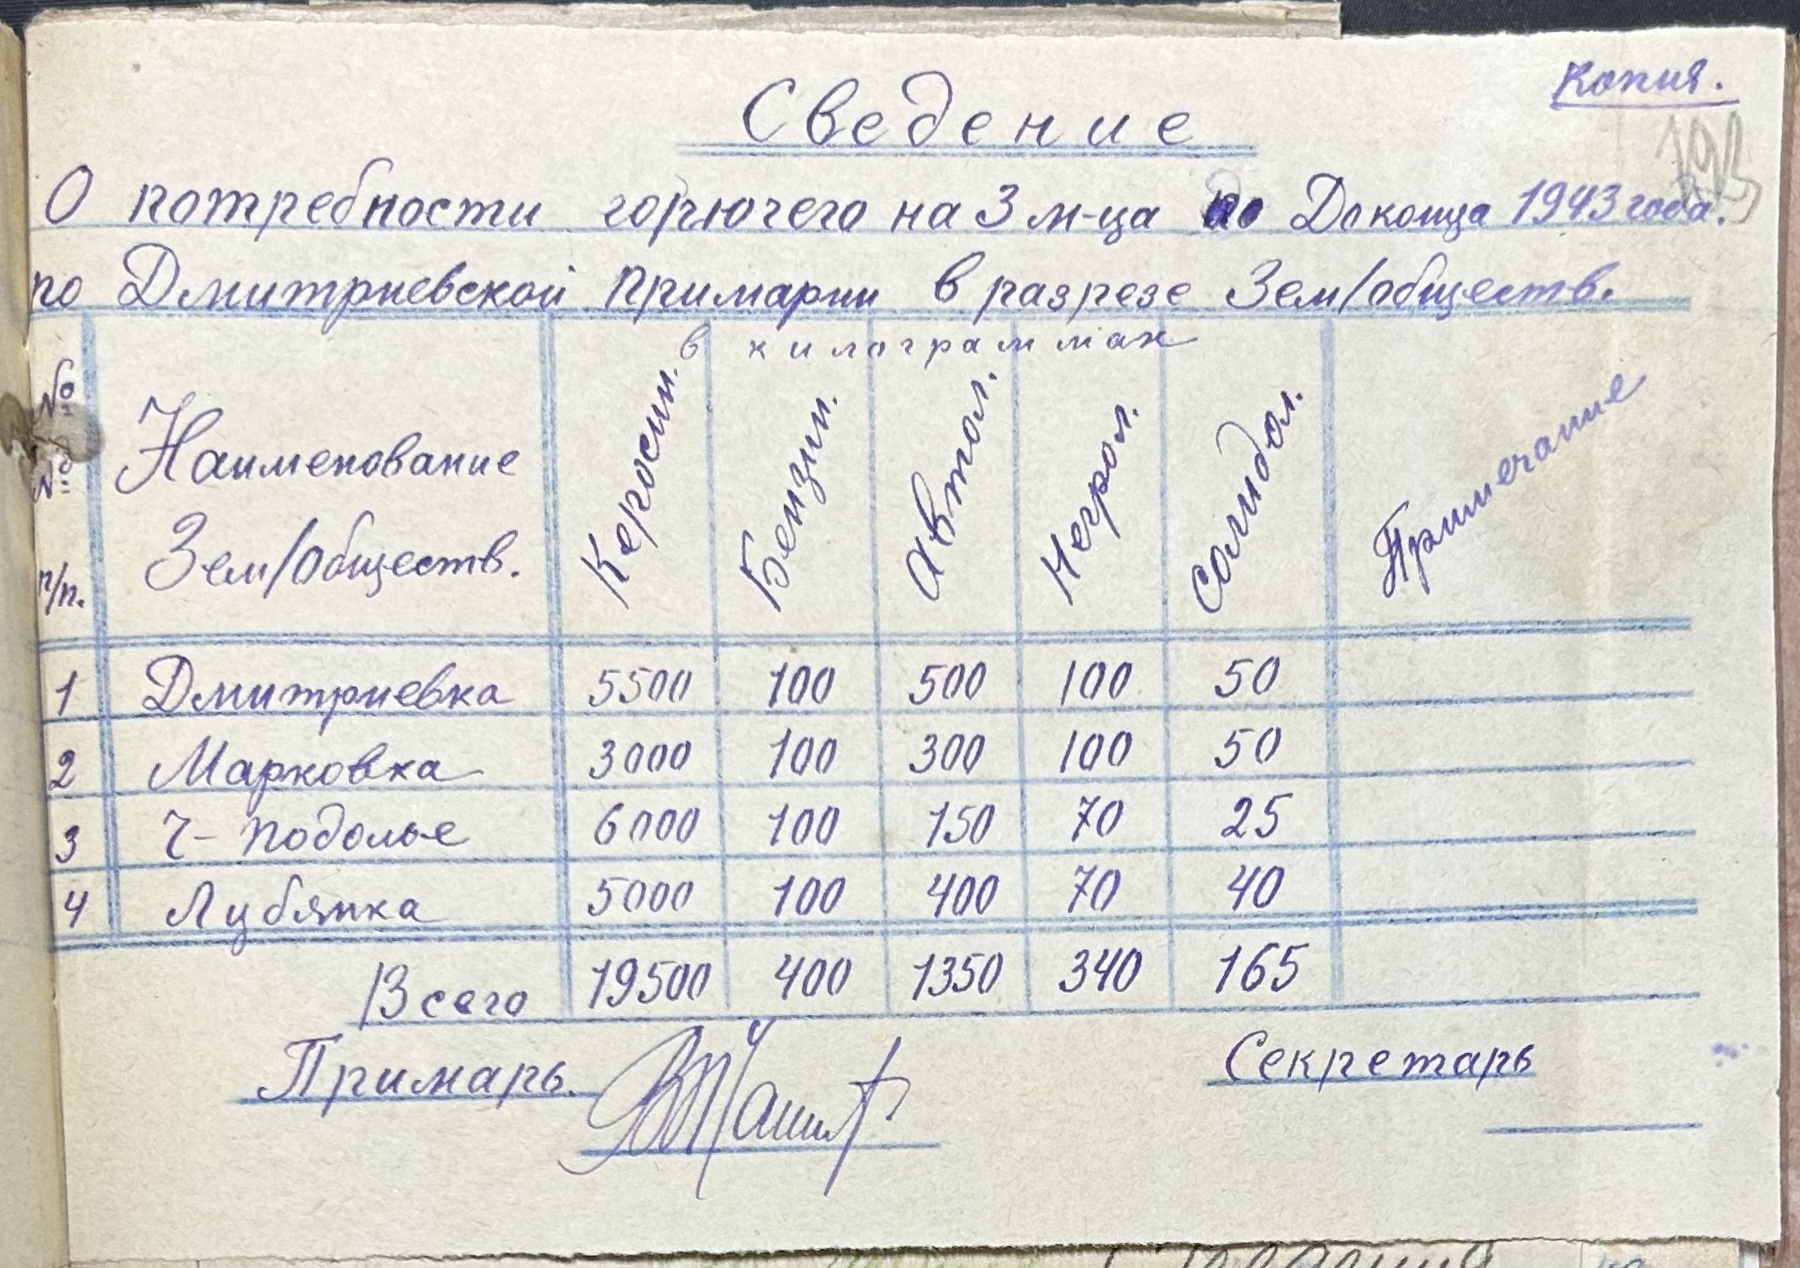 Копия.
193
Сведение
О потребности горючего на 3 м-ца До конца 1943 года.
по Дмитриевской Примарии в разрезе Зем/обществ.
в килограммах
№№ п/п. Наименование Зем/обществ. Керосин. Бензин. Автол. Негрол. Солидол. Примечание
1 Дмитриевка 5500 100 500 100 50
2 Марковка 3000 100 300 100 50
3 Ч-Подолье 6000 100 150 70 25
4 Лубянка 5000 100 400 70 40
Всего 19500 400 1350 340 165
Примарь. Секретарь